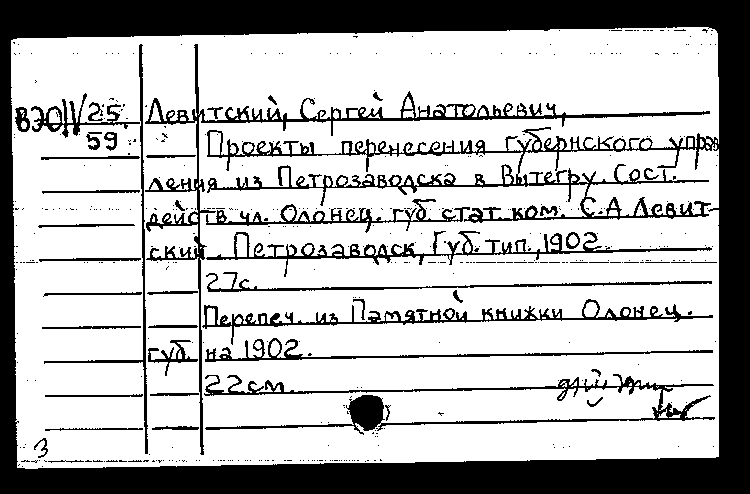 ВЭО IV 25/59
Левитский, Сергей Анатольевич,
Проекты перенесения губернского управ
ления из Петрозаводска в Вытегру. Сост.
действ. чл. Олонец. губ. стат. ком. С.А. Левит-
ский. Петрозаводск, Губ. тип., 1902.
27с.
Перепеч. из Памятной книжки Олонец.
губ. на 1902.
22см.
3